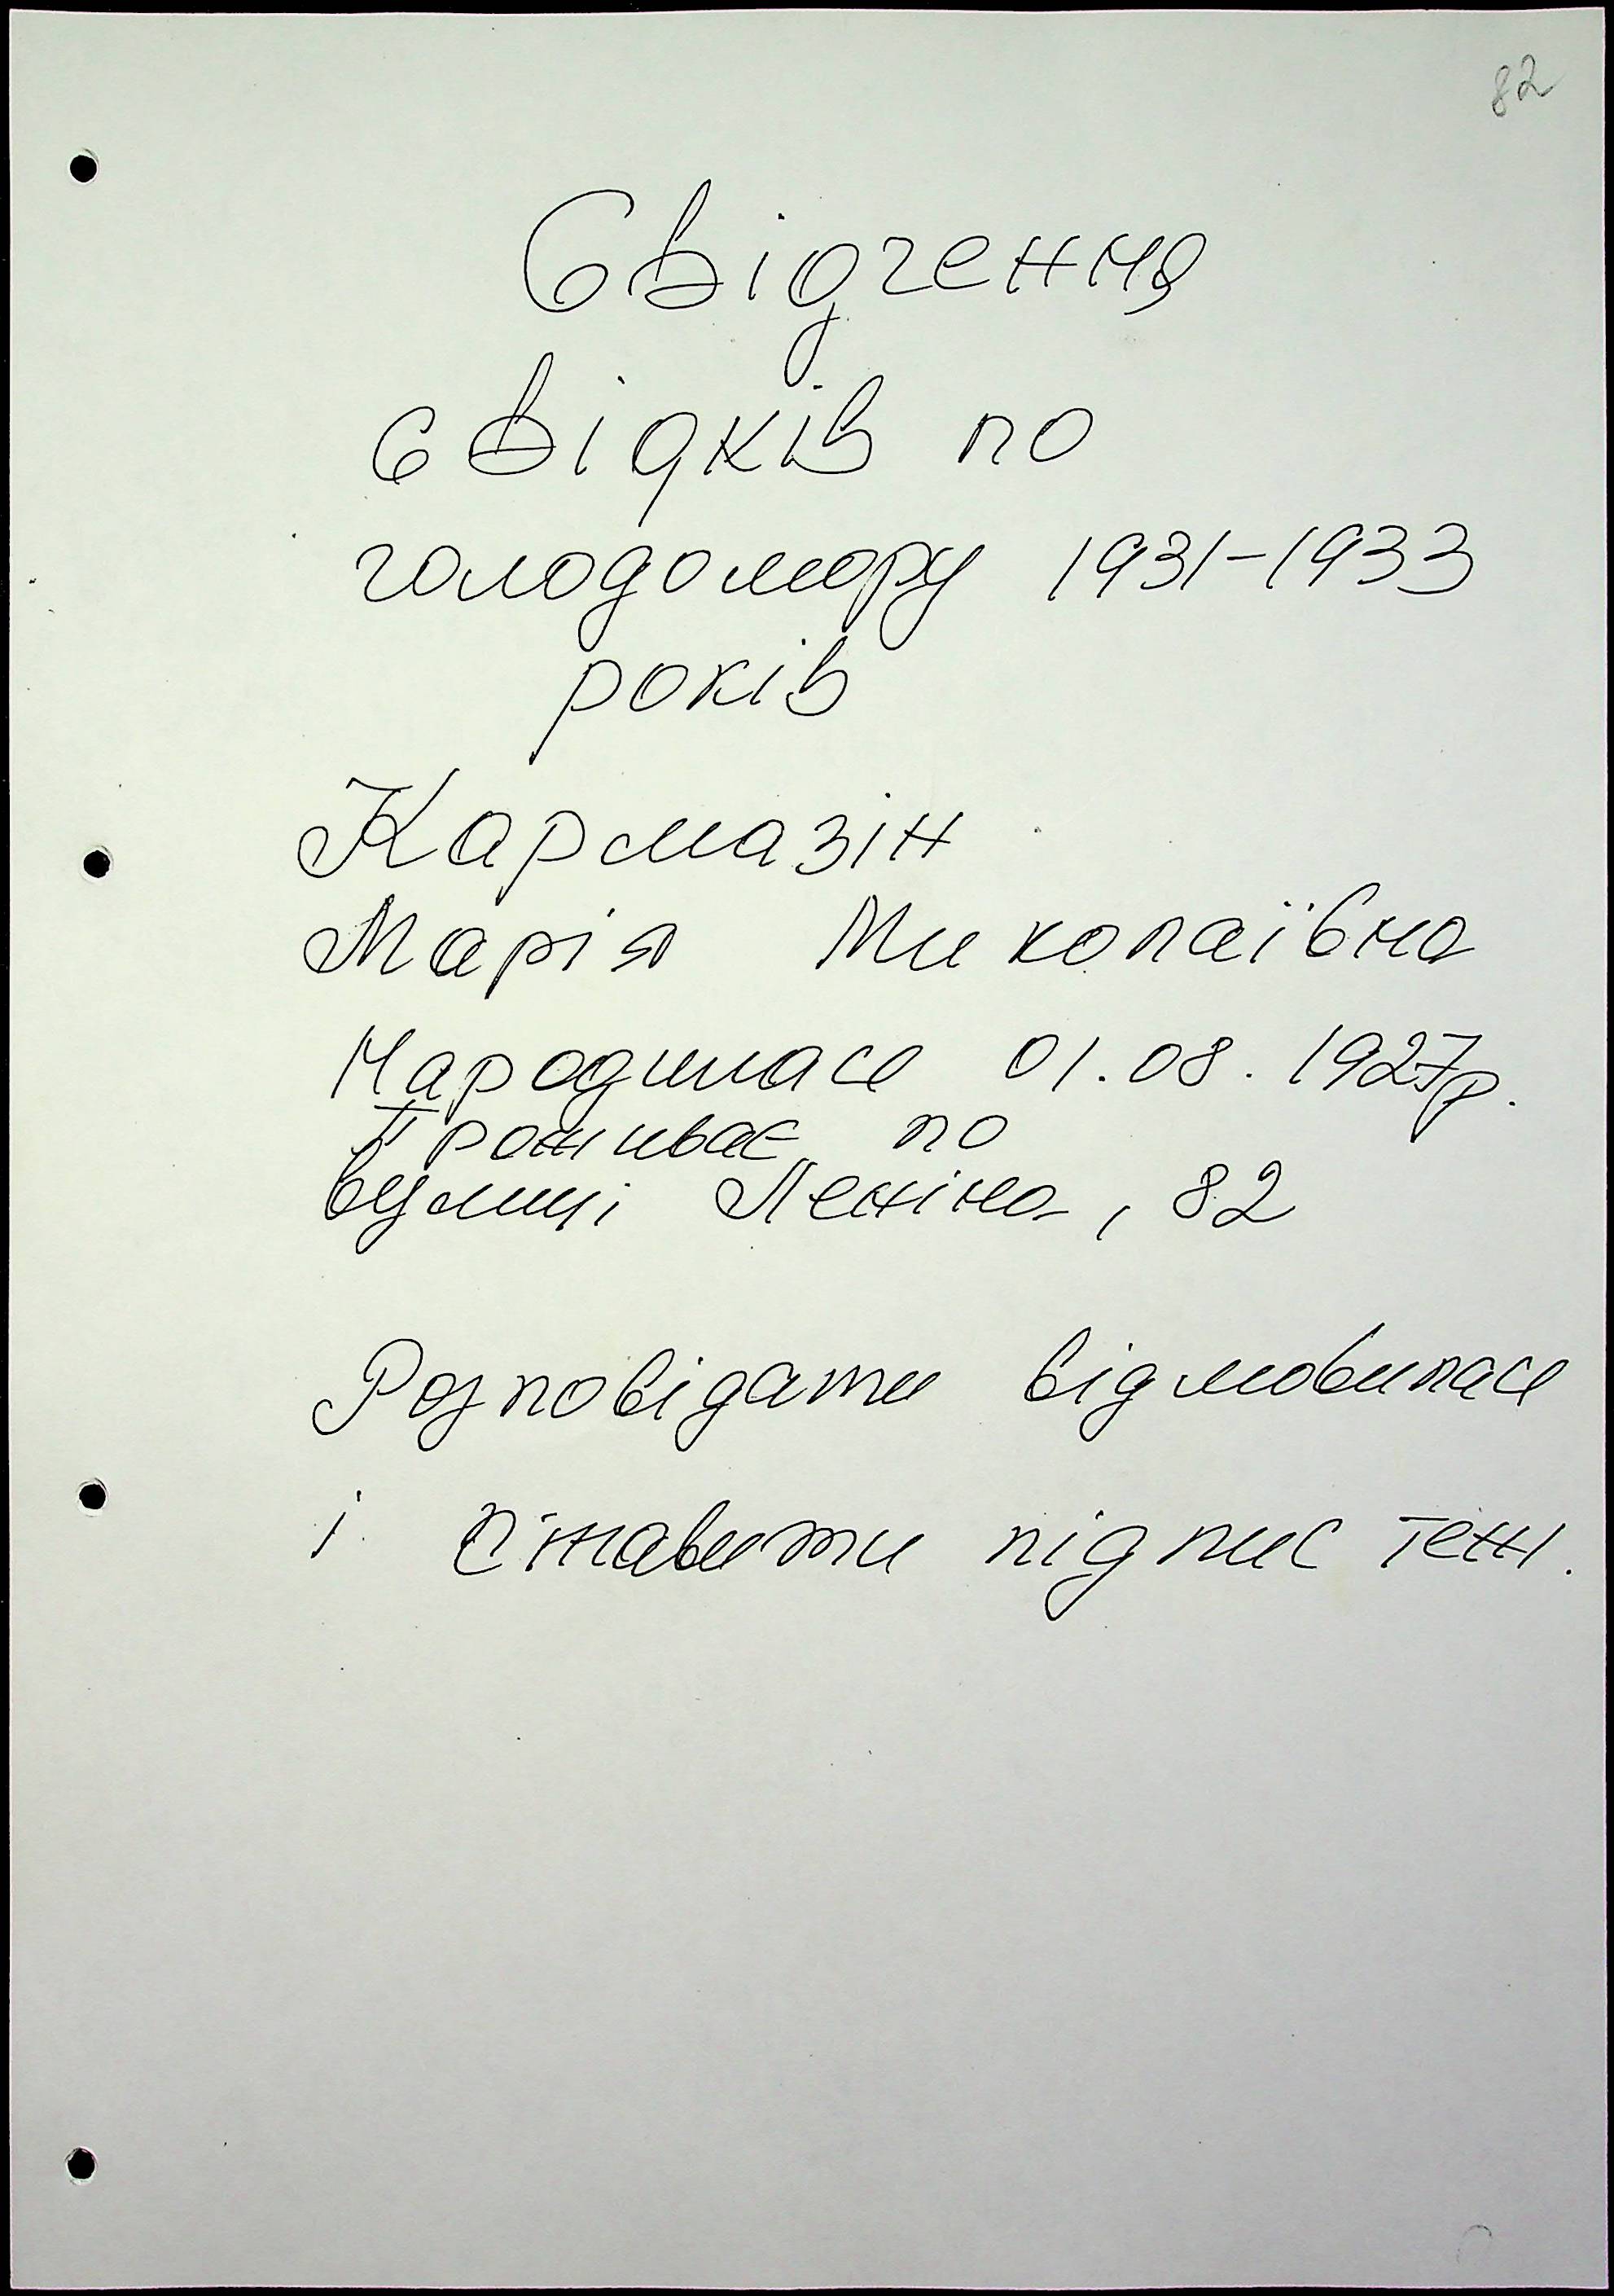 82
Свідчення
свідків по
голодомору 1931-1933
років
Кармазін
Марія Миколаївна
Народилась 01.08.1927р.
Проживає по
вулиці Леніна, 82
Розповідати відмовилась
і ставити підпис теж.